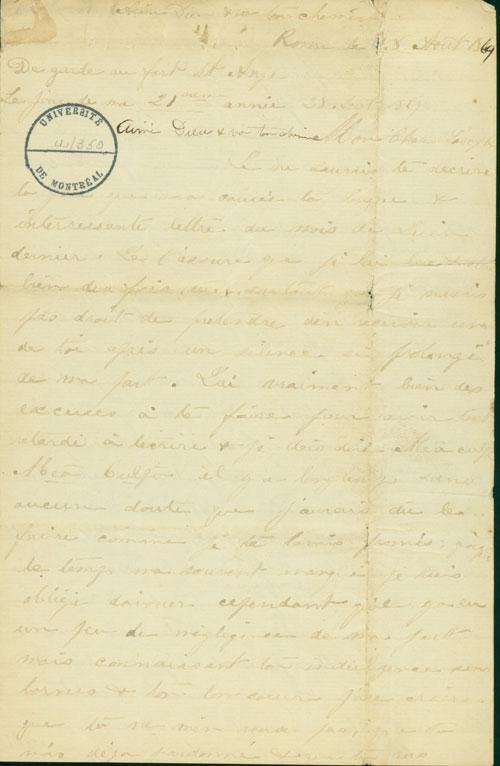 Aime Dieu & va ton chemin
Rome le 28 Août 1869
De garde au fort St Ange
Le jour de ma 21ième année 28 Août 1869
UNIVERSITÉ
U/350
DE MONTRÉAL
Aime Dieu & va ton chemin Mon Cher Joseph
Je ne saurais te décrire
la que m'a causée ta longue &
interressante lettre du mois de Juin
dernier. Je t'assure que je l'ai
bien des fois, surtout que je n'avais
pas droit de prétendre d'en recevoir une
de toi après un silence si prolongé
de ma part. J'ai vraiment bien des
excuses à te faire pour avoir tant
retardé à t'écrire & je dois dire Meâ culpâ
Meâ Culpâ il y a longtemps sans
aucun doute que j'aurais du le
faire comme je te l'avais promis;
le temps m'a souvent manqué je suis
obligé d'avouer cependant qu'il y a eu
un peu de négligence de ma part
mais connaissant ton indulgence sans
bornes & ton bon coeur j'ose croire
que tu ne m'en voudras pas, que tu
m'as déjà pardonné